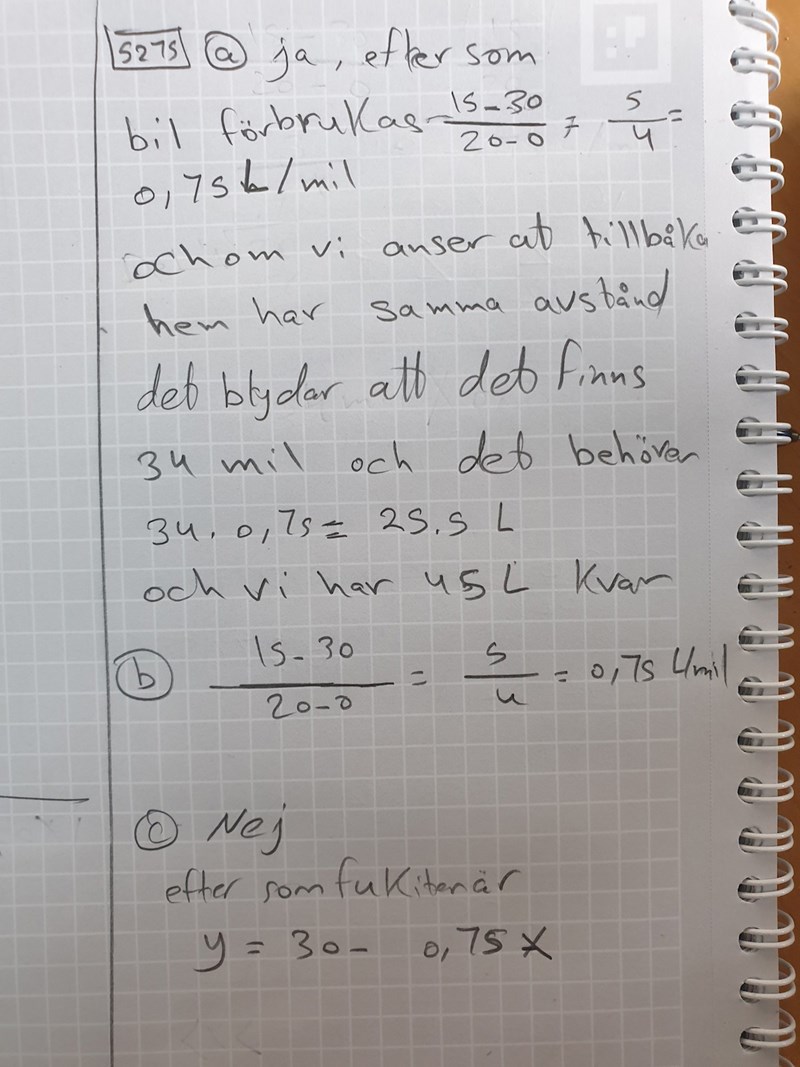 5275 a ja, efter som
bil förbrukas - 15-30 / 20-0 = 5/4 =
0,75 L/mil
och om vi anser at tillbåka
hem har samma avstånd
det btydar att det finns
34 mil och det behöver
34. 0,75 = 25.5 L
och vi har 45 L kvar
b 15-30 / 20-0 = 5/4 = 0,75 L/mil
c Nej
efter som fukitenär
y = 30 - 0,75 x